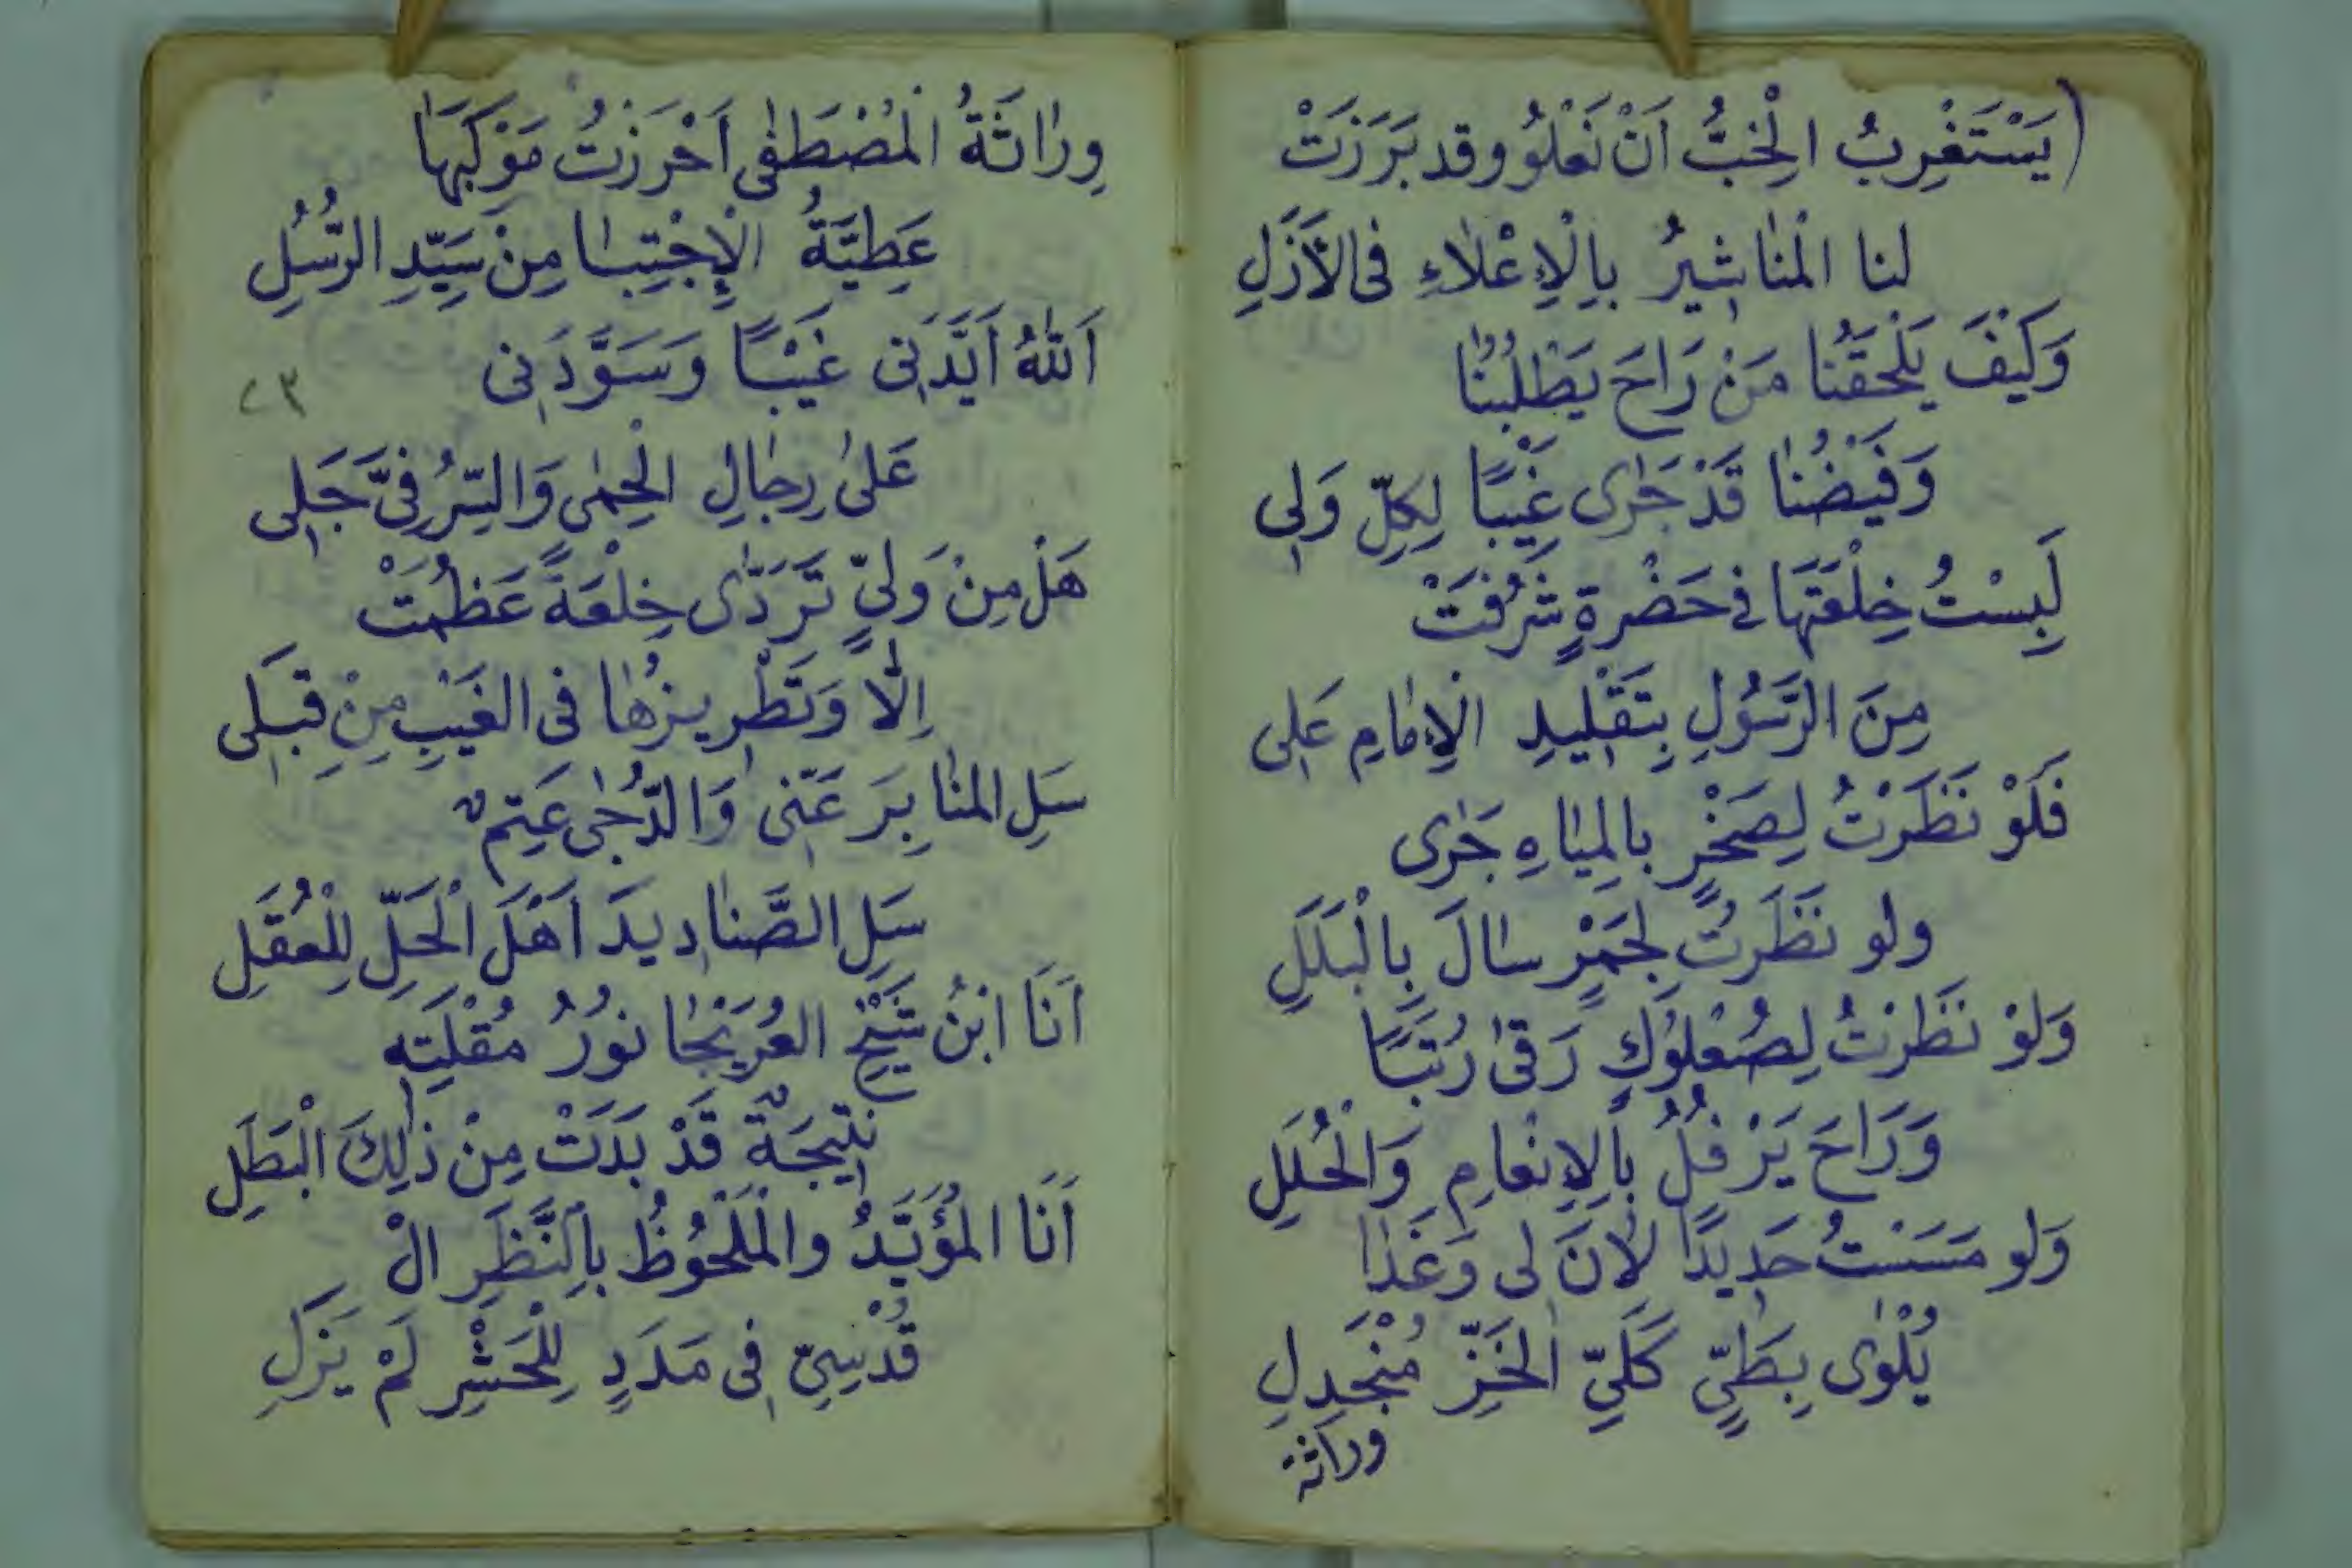 (يَسْتَغْرِبُ الْخِبُّ اَنْ نَعْلُو وقد بَرَزَتْ
لنا الْمَنَاشِيرُ بِالْاِعْلَاءِ فى الْاَزَلِ
وَكَيْفَ يَلْحَقُنَا مَنْ رَاحَ يَطْلُبُنَا
وَفَيْضُنَا قَدْ جَرَى غَيْبًا لِكُلِّ وَلِى
لَبِسْتُ خِلْعَتَهَا فى حَضْرةٍ شَرُفَتْ
مِنَ الرَّسُولِ بِتَقْلِيدِ الْاِمَامِ عَلِى
فَلَوْ نَظَرْتُ لِصَخْرٍ بالمِيَاهِ جَرَى
ولو نَظَرْتُ لِجَمْرٍ سَالَ بِالْبَلَلِ
وَلَوْ نَظَرْتُ لِصُعْلُوكٍ رَقىٰ رُتَبًا
وَرَاحَ يَرْفُلُ بِالْاِنْعَامِ وَالْحُلَلِ
وَلو مَسَسْتُ حَدِيدًا لَانَ لى وَغَدَا
يُلْوٰى بِطَيٍّ كَلَيِّ الخَزِّ مُنْجَدِلِ
وراثة
وِرَاثَةُ الْمُصْطَفٰى اَحْرَزْتُ مَوْكِبَهَا
عَطِيَّةُ الْاِجْتِبَا مِنْ سَيِّدِ الرُّسُلِ
اَللّٰهُ اَيَّدَنِى غَيْبًا وَسَوَّدَنِى
٢٣
عَلىٰ رِجَالِ الْحِمٰى وَالسِّرُ فِىَّ جَلِى
هَلْ مِنْ وَلِيٍّ تَرَدّٰى خِلْعَةً عَظُمَتْ
اِلَّا وَتَطْرِيزُهَا فى الغَيْبِ مِنْ قِبَلِى
سَلِ المنَابِرَ عَنِّى وَالدُّجٰى عَتِمٌ
سَلِ الصَّنَادِيدَ اَهْلَ الْحَلِّ لِلْعُقَلِ
اَنَا ابْنُ شَيْخِ العُرَيْجَا نُورُ مُقْلَتِهِ
نَتِيجَةٌ قَدْ بَدَتْ مِنْ ذٰلِكَ الْبَطَلِ
اَنَا المُؤَيَّدُ والْمَلْحُوظُ بِالنَّظَرِ الْ
قُدْسِيِّ فِى مَدَدٍ لِلْحَشْرِ لَمْ يَزَلِ